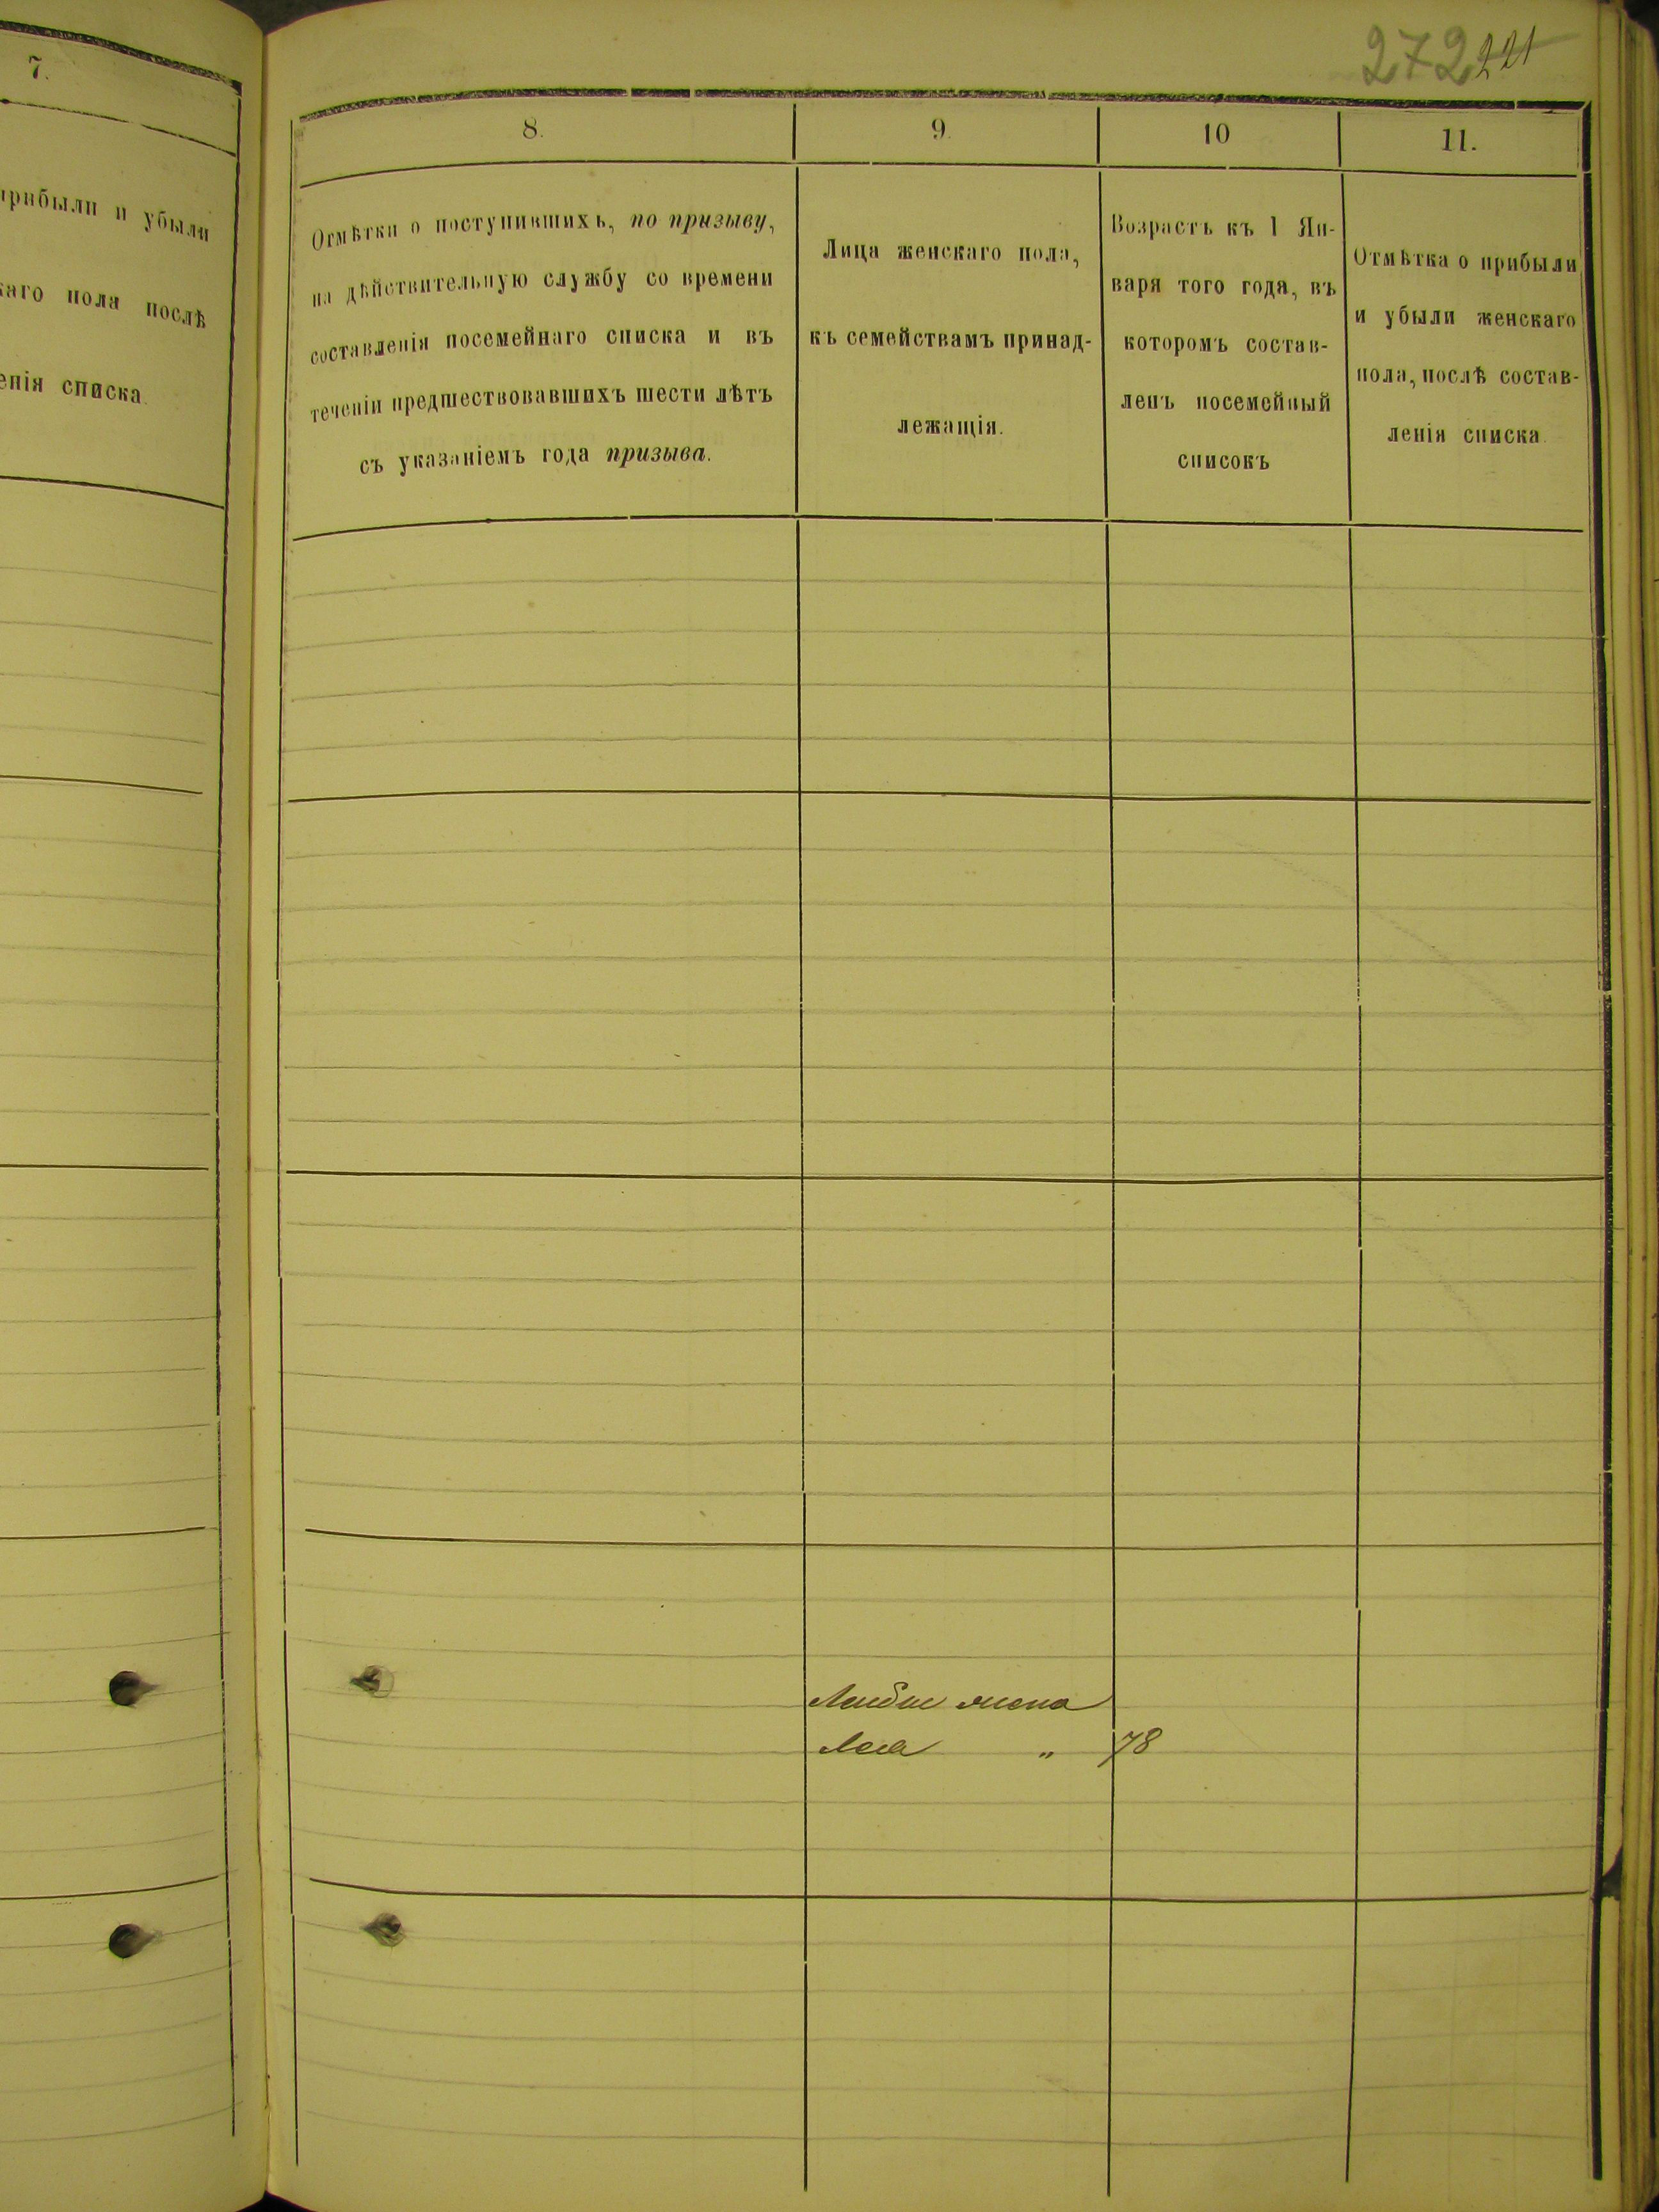 7.
прибыли и убыли
каго пола послѣ
енія списка.
272 221
8.
Отмѣтки о поступившихъ, по призыву,
на дѣйствительную службу со времени
составленія посемейнаго списка и въ
теченіи предшествовавшихъ шести лѣтъ
съ указаніемъ года призыва.
9.
Лица женскаго пола,
къ семействамъ принад-
лежащія.
10
Возрастъ къ 1 Ян-
варя того года, въ
которомъ состав-
ленъ посемейный
списокъ
11.
Отмѣтка о прибыли
и убыли женскаго
пола, послѣ состав-
ленія списка.
жена
„ 78